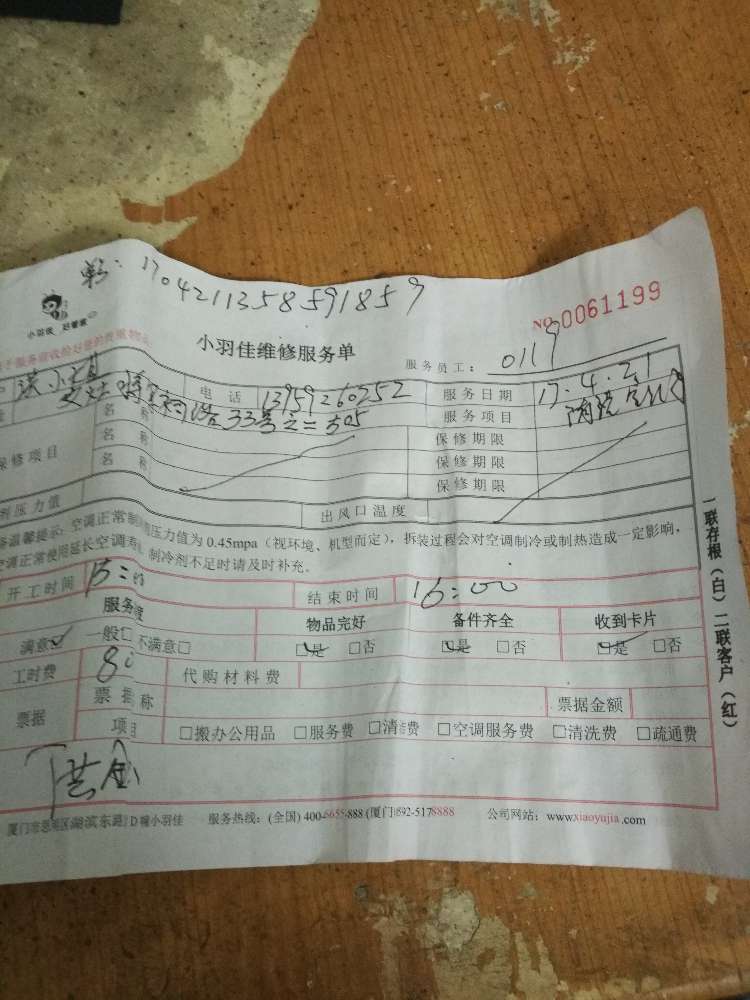 单: 1704211358591859
小羽佳 好管家
NO.0061199
小羽佳维修服务单
服务员工: 0119
洪小姐 电话 13959260252 服务日期 17.4.21
33号之二305 服务项目
名称 保修期限
保修项目 名称 保修期限
保修期限
压力值 出风口温度
温馨提示: 空调正常制 压力值为 0.45mpa (视环境、机型而定), 拆装过程会对空调制冷或制热造成一定影响,
调正常使用延长空调寿 制冷剂不足时请及时补充。
开工时间 15:00 结束时间 16:00
服务 度 物品完好 备件齐全 收到卡片
满意☑ 一般□ 不满意□ ☑是 □否 ☑是 □否 ☑是 □否
工时费 80 代购材料费
票据 票据 称 票据金额
项目 □搬办公用品 □服务费 □清 费 □空调服务费 □清洗费 □疏通费
厦门市思明区湖滨东路 D幢小羽佳 服务热线: (全国) 400-6655-888 (厦门) 592-5178888 公司网站: www.xiaoyujia.com
一联存根(白) 二联客户(红)